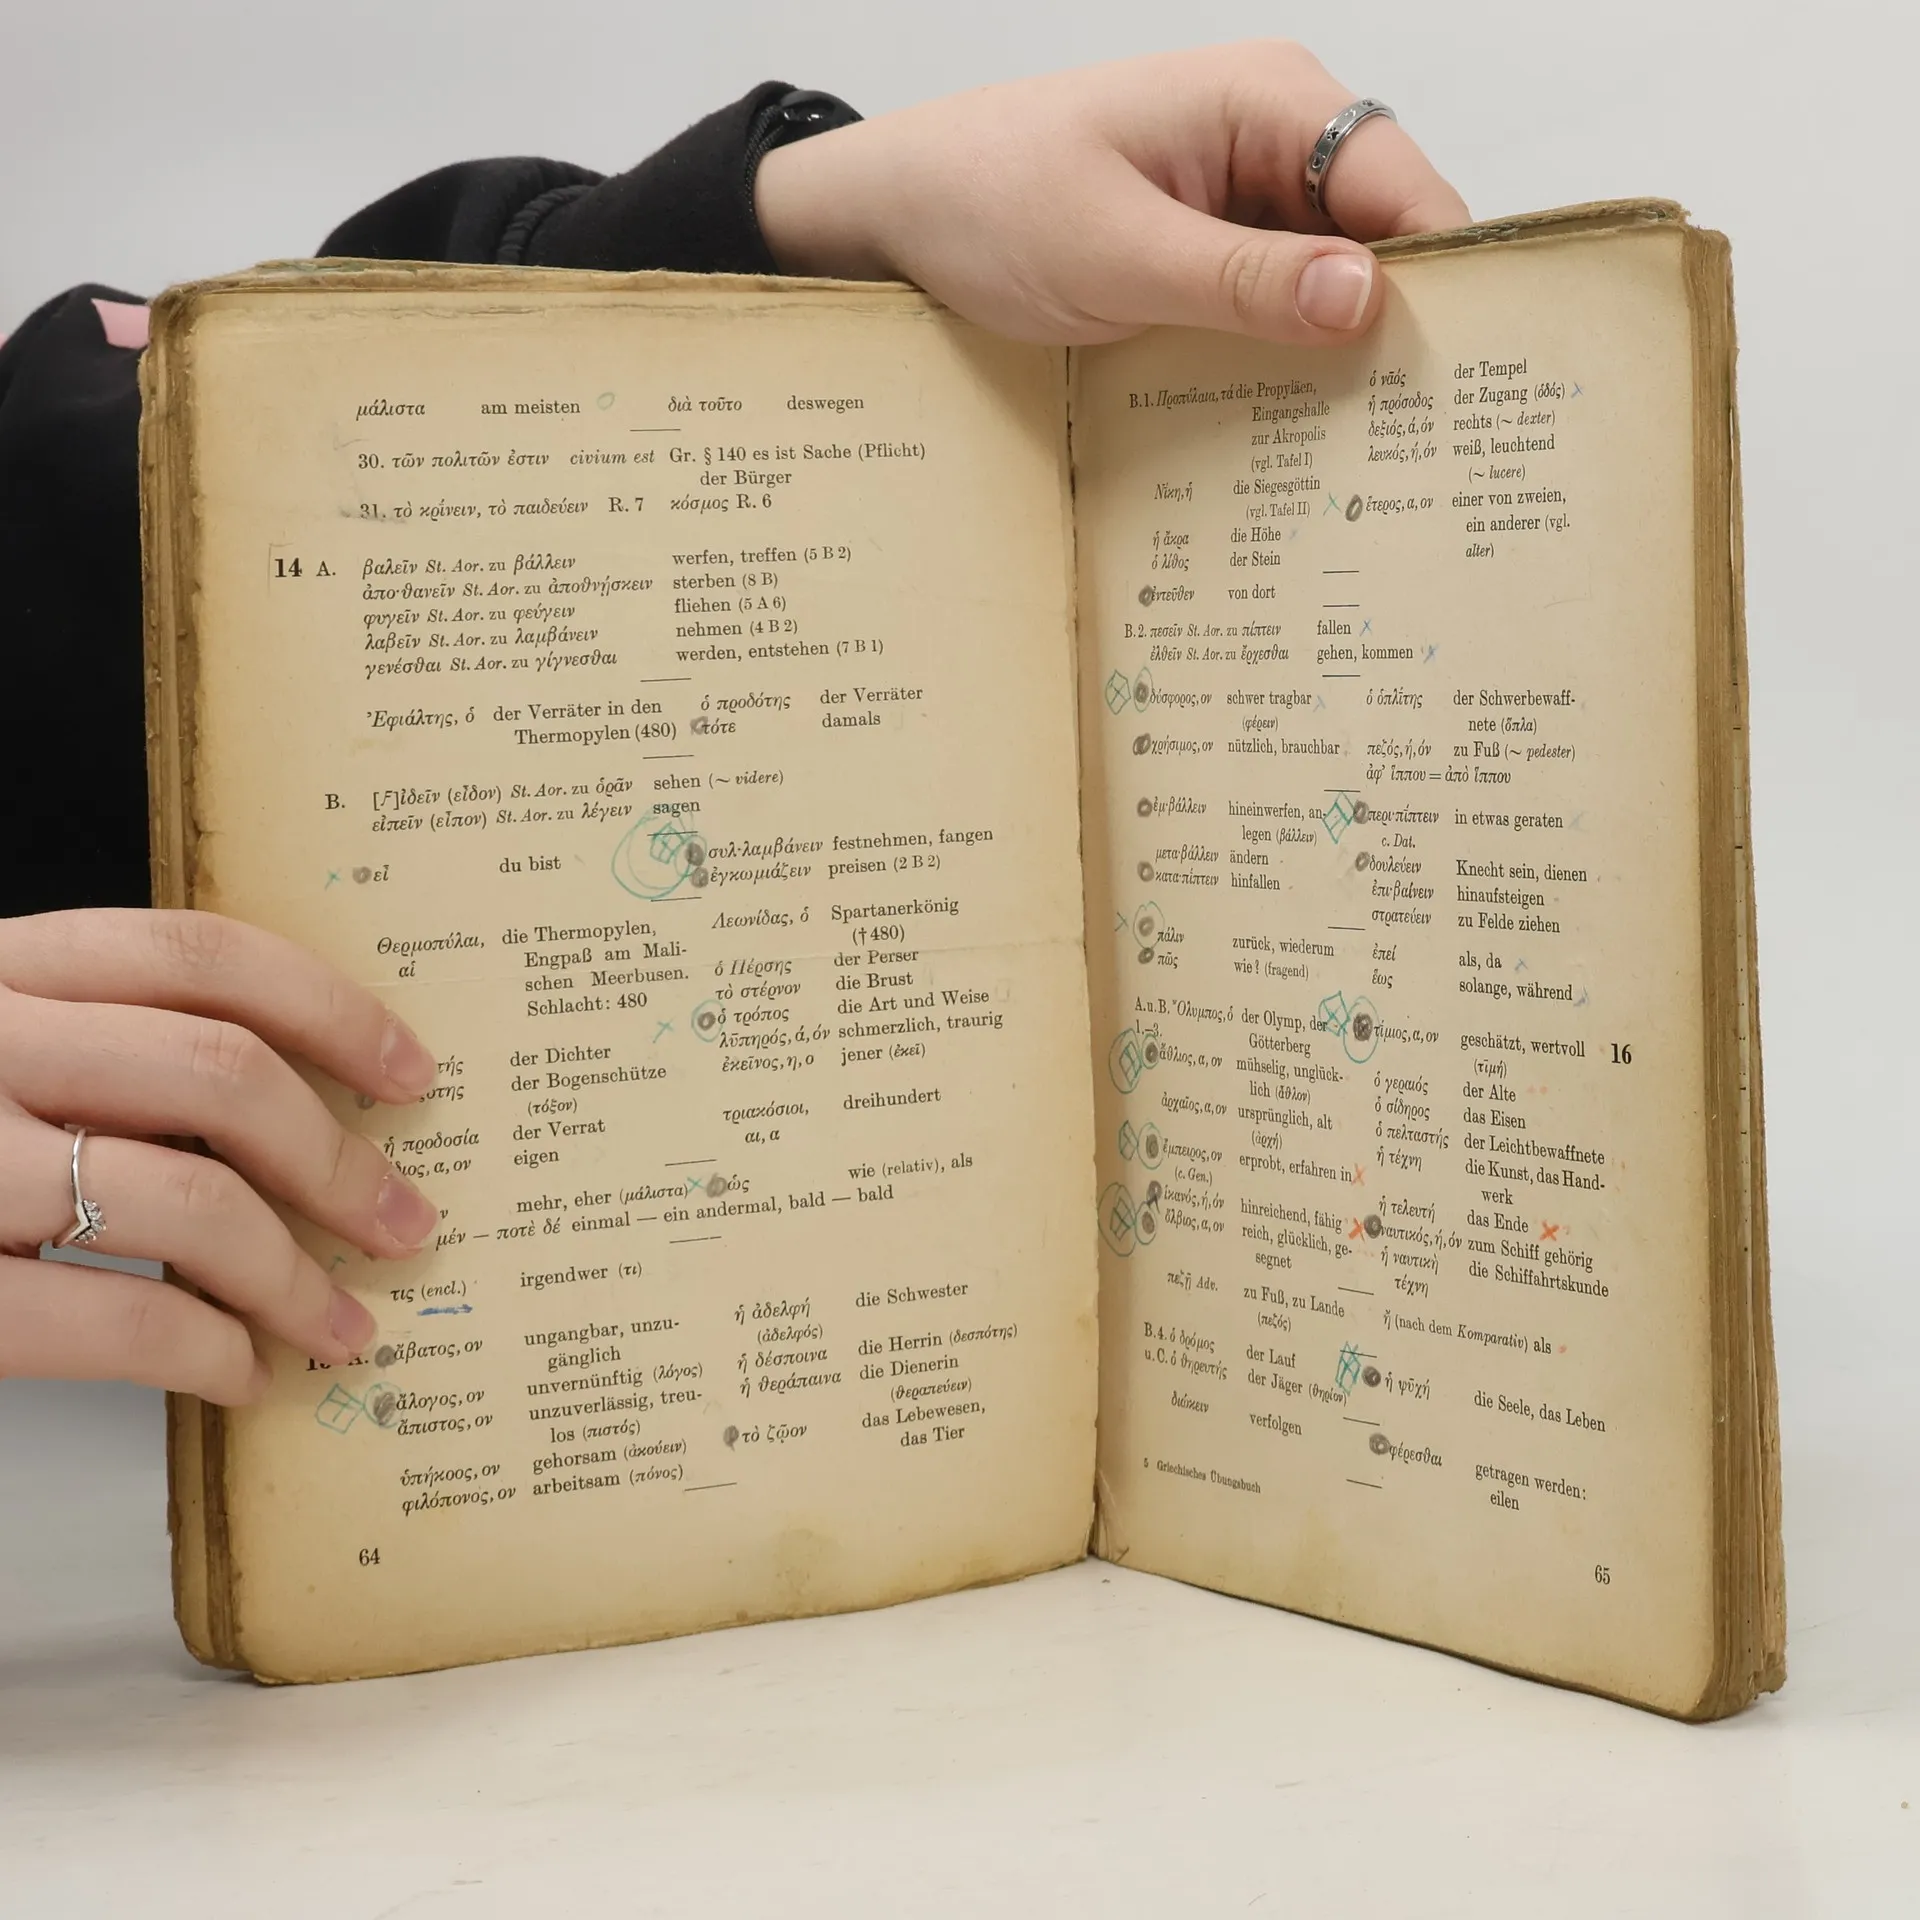 μάλιστα am meisten διὰ τοῦτο deswegen
30. τῶν πολιτῶν ἐστιν civium est Gr. § 140 es ist Sache (Pflicht)
der Bürger
31. τὸ κρίνειν, τὸ παιδεύειν R. 7 κόσμος R. 6
14 A. βαλεῖν St. Aor. zu βάλλειν werfen, treffen (5 B 2)
ἀπο·θανεῖν St. Aor. zu ἀποθνῄσκειν sterben (8 B)
φυγεῖν St. Aor. zu φεύγειν fliehen (5 A 6)
λαβεῖν St. Aor. zu λαμβάνειν nehmen (4 B 2)
γενέσθαι St. Aor. zu γίγνεσθαι werden, entstehen (7 B 1)
Ἐφιάλτης, ὁ der Verräter in den
Thermopylen (480)
ὁ προδότης der Verräter
τότε damals
B. [F]ἰδεῖν (εἶδον) St. Aor. zu ὁρᾶν sehen (~ videre)
εἰπεῖν (εἶπον) St. Aor. zu λέγειν sagen
εἶ du bist
συλ·λαμβάνειν festnehmen, fangen
ἐγκωμιάζειν preisen (2 B 2)
Θερμοπύλαι, die Thermopylen,
αἱ Engpaß am Mali-
schen Meerbusen.
Schlacht: 480
τής der Dichter
ότης der Bogenschütze
(τόξον)
ἡ προδοσία der Verrat
διος, α, ον eigen
Λεωνίδας, ὁ Spartanerkönig
(† 480)
ὁ Πέρσης der Perser
τὸ στέρνον die Brust
ὁ τρόπος die Art und Weise
λῡπηρός, ά, όν schmerzlich, traurig
ἐκεῖνος, η, ο jener (ἐκεῖ)
τριακόσιοι, dreihundert
αι, α
ν mehr, eher (μάλιστα) ὡς wie (relativ), als
μέν — ποτὲ δέ einmal — ein andermal, bald — bald
τις (encl.) irgendwer (τι)
A. ἄβατος, ον ungangbar, unzu-
gänglich
ἄλογος, ον unvernünftig (λόγος)
ἄπιστος, ον unzuverlässig, treu-
los (πιστός)
ὑπήκοος, ον gehorsam (ἀκούειν)
φιλόπονος, ον arbeitsam (πόνος)
ἡ ἀδελφή die Schwester
(ἀδελφός)
ἡ δέσποινα die Herrin (δεσπότης)
ἡ θεράπαινα die Dienerin
(θεραπεύειν)
τὸ ζῷον das Lebewesen,
das Tier
64
B. 1. Προπύλαια, τά die Propyläen,
Eingangshalle
zur Akropolis
(vgl. Tafel I)
Νίκη, ἡ die Siegesgöttin
(vgl. Tafel II)
ἡ ἄκρα die Höhe
ὁ λίθος der Stein
ὁ νᾱός der Tempel
ἡ πρόσοδος der Zugang (ὁδός)
δεξιός, ά, όν rechts (~ dexter)
λευκός, ή, όν weiß, leuchtend
(~ lucere)
ἕτερος, α, ον einer von zweien,
ein anderer (vgl.
alter)
ἐντεῦθεν von dort
B. 2. πεσεῖν St. Aor. zu πίπτειν fallen
ἐλθεῖν St. Aor. zu ἔρχεσθαι gehen, kommen
δύσφορος, ον schwer tragbar
(φέρειν)
χρήσιμος, ον nützlich, brauchbar
ὁ ὁπλίτης der Schwerbewaff-
nete (ὅπλα)
πεζός, ή, όν zu Fuß (~ pedester)
ἀφ’ ἵππου = ἀπὸ ἵππου
ἐμ·βάλλειν hineinwerfen, an-
legen (βάλλειν)
μετα·βάλλειν ändern
κατα·πίπτειν hinfallen
περι·πίπτειν in etwas geraten
c. Dat.
δουλεύειν Knecht sein, dienen
ἐπι·βαίνειν hinaufsteigen
στρατεύειν zu Felde ziehen
πάλιν zurück, wiederum
πῶς wie? (fragend)
ἐπεί als, da
ἕως solange, während
A. u. B. Ὄλυμπος, ὁ der Olymp, der
1.–3. Götterberg
ἄθλιος, α, ον mühselig, unglück-
lich (ἆθλον)
ἀρχαῖος, α, ον ursprünglich, alt
(ἀρχή)
ἔμπειρος, ον erprobt, erfahren in
(c. Gen.)
ἱκανός, ή, όν hinreichend, fähig
ὄλβιος, α, ον reich, glücklich, ge-
segnet
τίμιος, α, ον geschätzt, wertvoll 16
(τῑμή)
ὁ γεραιός der Alte
ὁ σίδηρος das Eisen
ὁ πελταστής der Leichtbewaffnete
ἡ τέχνη die Kunst, das Hand-
werk
ἡ τελευτή das Ende
ναυτικός, ή, όν zum Schiff gehörig
ἡ ναυτικὴ die Schiffahrtskunde
τέχνη
πεζῇ Adv. zu Fuß, zu Lande
(πεζός)
ἤ (nach dem Komparativ) als
B. 4. ὁ δρόμος der Lauf
u. C. ὁ θηρευτής der Jäger (θηρίον)
ἡ ψῡχή die Seele, das Leben
διώκειν verfolgen
φέρεσθαι getragen werden:
eilen
5 Griechisches Übungsbuch
65